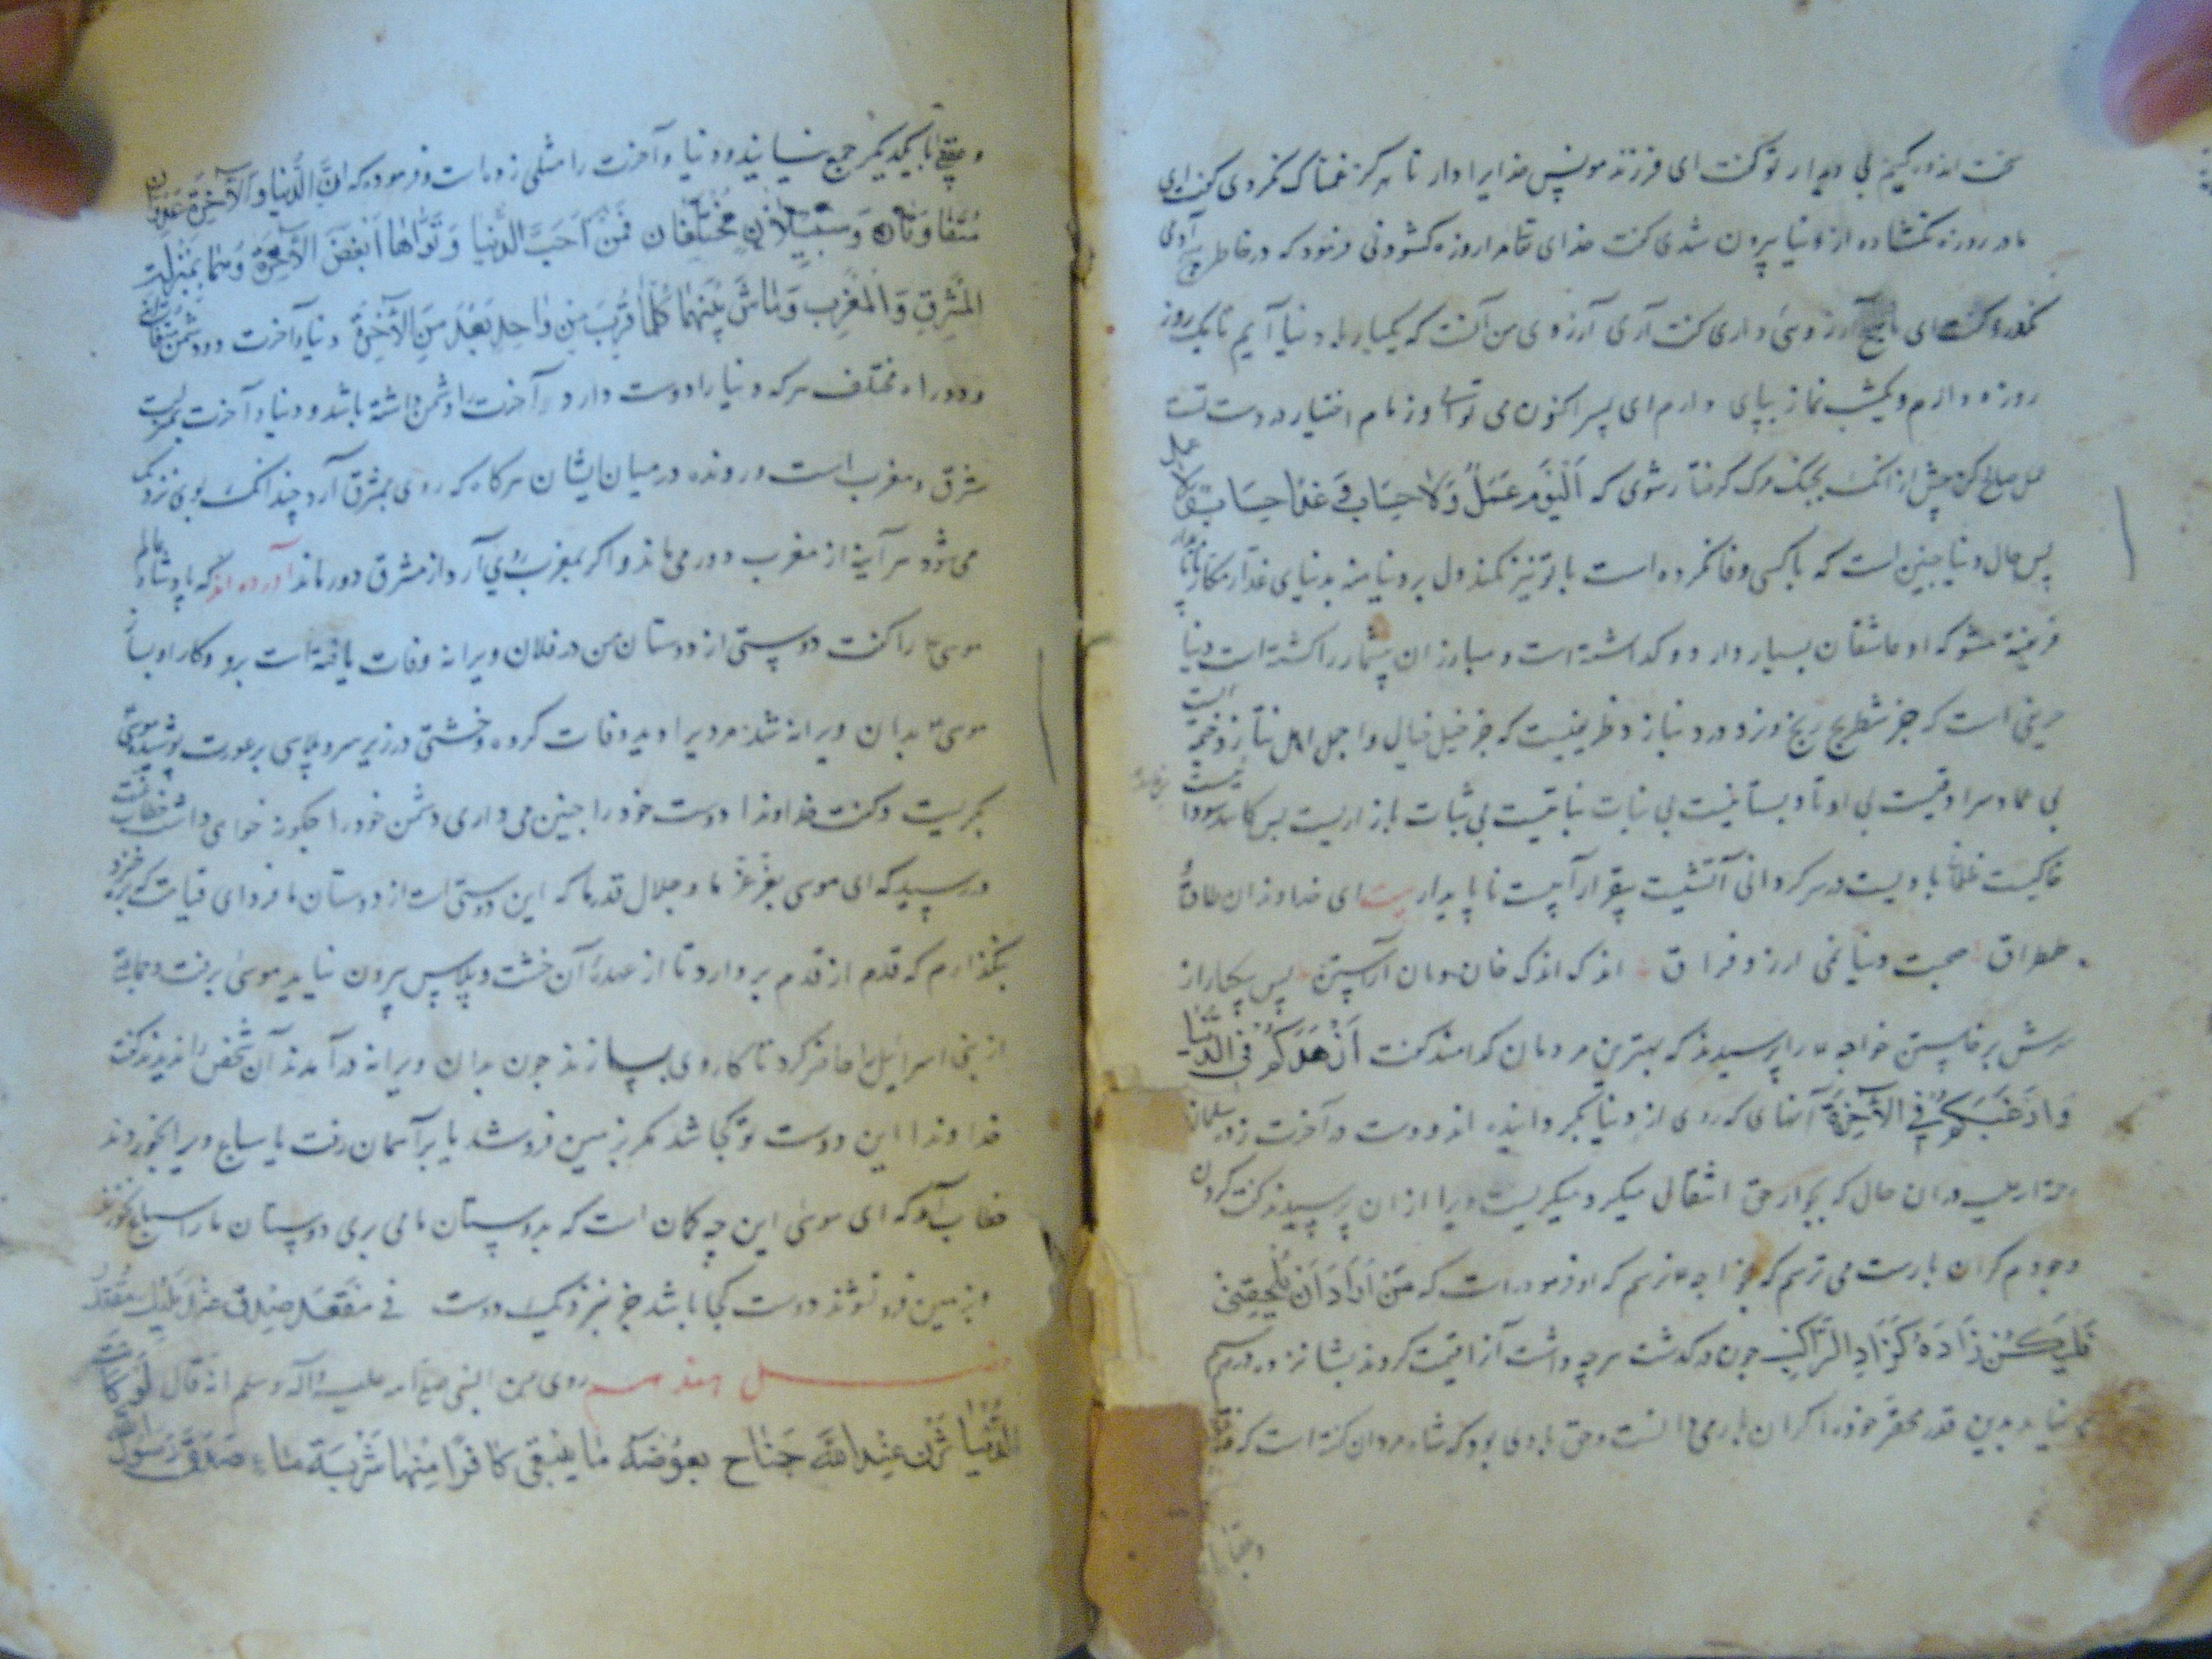 سخت اندوهگینم بی دیدار تو گفت ای فرزند مونس خدایرا دار تا هرگز غمناک نگردی گفت ای
مادر روزه نگشاده از دنیا بیرون شدی گفت خدای تعالی مرا روزه گشودنی فرمود که در خاطر هیچ آدمی
نگذرد گفت ای مادر هیچ آرزوئی داری گفت آری آرزوی من آنست که یکبار بدنیا آیم تا یک روز
روزه دارم و یکشب نماز بپای دارم ای پسر اکنون می توانی و زمام اختیار در دست تست
عمل صالح کن پیش از آنک بچنگ مرگ گرفتار شوی که اَلْیَوْمَ عَمَلٌ وَلَا حِسَابَ وَغَدًا حِسَابٌ وَلَا عمل
پس حال دنیا چنین است که با کسی وفا نکرده است با تو نیز نکند دل بر دنیا منه بدنیای غدار مکار ناپایدار
فریفته مشو که او عاشقان بسیار دارد و کداشته است و مبارزان بیشمار را کشته است دنیا
حریفی است که جز شطرنج رنج نورزد و دنیا زد ظریفیست که جز خیل خیال و اجل امل نتازد خیمه ایست
بی عماد سراوقیست بی اوتاد بستانیست بی نبات نباتیست بی ثبات بازاریست بس کاسد سودا نیست
خاکیست غلطان بادیست در سرگردانی آتشیست بیقرار آبیست ناپایدار بیت ای خداوندان طاق و
طمطراق صحبت دنیا نمی ارزد فراق اندک اندک خان و مان آراستن پس بیکبار از
سرش برخاستن خواجه را پرسیدند که بهترین مردمان کدامند گفت اَزْهَدُكُمْ فِی الدُّنْیَا
وَاَرْغَبُكُمْ فِی الْآخِرَةِ آنهای که روی از دنیا بگردانیده اند و دست در آخرت زده سلمان
رحمة الله علیه در ان حال که بجوار حق انتقال میکرد میگریست ویرا از ان پرسیدند گفت گردن
وجودم گران بارست می ترسم که بخواجه نرسم که او فرموده است که مَنْ اَرَادَ اَنْ یَلْحَقَنِی
فَلْیَكُنْ زَادَهُ كَزَادِ الرَّاكِبِ چون درگذشت هرچه داشت آنرا قیمت کردند بشانزده درم
نیامد بدین قدر محقر خود را گران بار می دانست و حق بادی بود که شاه مردان گفته است که
و عقبی با یکدیگر جمع نیایند و دنیا و آخرت را مثلی زده است و فرموده که اِنَّ الدُّنْیَا وَالْآخِرَةَ عَدُوَّانِ
مُتَفَاوِتَانِ وَسَبِیلَانِ مُخْتَلِفَانِ فَمَنْ اَحَبَّ الدُّنْیَا وَتَوَلَّاهَا اَبْغَضَ الْآخِرَةَ وَهُمَا بِمَنْزِلَةِ
الْمَشْرِقِ وَالْمَغْرِبِ وَمَاشٍ بَیْنَهُمَا كُلَّمَا قَرُبَ مِنْ وَاحِدٍ بَعُدَ مِنَ الْآخِرَةِ دنیا و آخرت دو دشمن متفاوتند
و دو راه مختلف هرکه دنیا را دوست دارد آخرت را دشمن داشته باشد و دنیا و آخرت بمنزلت
مشرق و مغرب است و رونده در میان ایشان هرگاه که روی بمشرق آرد چندانک بوی نزدیک
می شود هرآینه از مغرب دور می ماند و اگر بمغرب روی آرد از مشرق دور ماند آورده اند که پادشاه عالم
موسی را گفت دوستی از دوستان من در فلان ویرانه وفات یافته است برو و کار او بساز
موسی بدان ویرانه شد مردیرا دید وفات کرده و خشتی در زیر سر و پلاسی بر عورت پوشیده موسی
بگریست و گفت خداوندا دوست خود را چنین می داری دشمن خود را چگونه خواهی داشت خطاب عزت
در رسید که ای موسی بعزعز ما و جلال قدر ما که این دوستی است از دوستان ما فردای قیامت که برخیزد
نگذارم که قدم از قدم بردارد تا از عهده آن خشت و پلاس بیرون نیاید موسی برفت و جماعتی
از بنی اسرائیل را حاضر کرد تا کار وی بسازند چون بدان ویرانه درآمدند آن شخص را ندیدند گفت
خداوندا این دوست تو کجا شد مگر بزمین فروشد یا بر آسمان رفت یا سباع ویرا بخوردند
خطاب آمد که ای موسی این چه گمان است که بدوستان ما می بری دوستان ما را سباع نخورند
و بزمین فرونشوند دوست کجا باشد جز بنزدیک دوست فِی مَقْعَدِ صِدْقٍ عِنْدَ مَلِیكٍ مُقْتَدِرٍ
فصل هفدهم روی عن النبی صلی الله علیه وآله وسلم انه قال لَوْ كَانَتِ
الدُّنْیَا تَزِنُ عِنْدَ اللهِ جَنَاحَ بَعُوضَةٍ مَا یَسْقِی كَافِرًا مِنْهَا شَرْبَةَ مَاءٍ صَدَقَ رَسُولُ الله